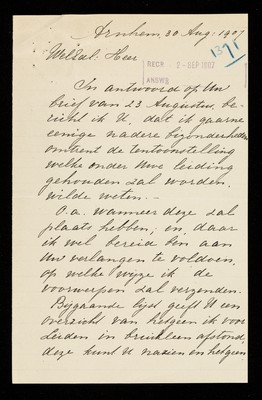 Arnhem, 30 Aug: 1907
1371
WelEd. Heer
RECD 2-SEP 1907
ANSWD
In antwoord op Uw
brief van 23 Augustus, be-
richt ik U, dat ik gaarne
eenige nadere bijzonderheden
omtrent de tentoonstelling
welke onder Uwe leiding
gehouden zal worden,
wilde weten. —
O.a. wanneer deze zal
plaats hebben; en, daar
ik wel bereid ben aan
Uw verlangen te voldoen,
op welke wijze ik de
voorwerpen zal verzenden.
Bijgaande lijst geeft U een
overzicht van hetgeen ik voor
Leiden in bruikleen afstond,
deze kunt U nazien en hetgeen